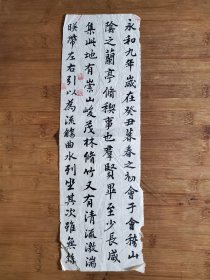 永和九年歲在癸丑暮春之初會于會稽山
陰之蘭亭脩稧事也群賢畢至少長咸
集此地有崇山峻茂林脩竹又有清流激湍
暎帶左右引以為流觴曲水列坐其次雖無絲